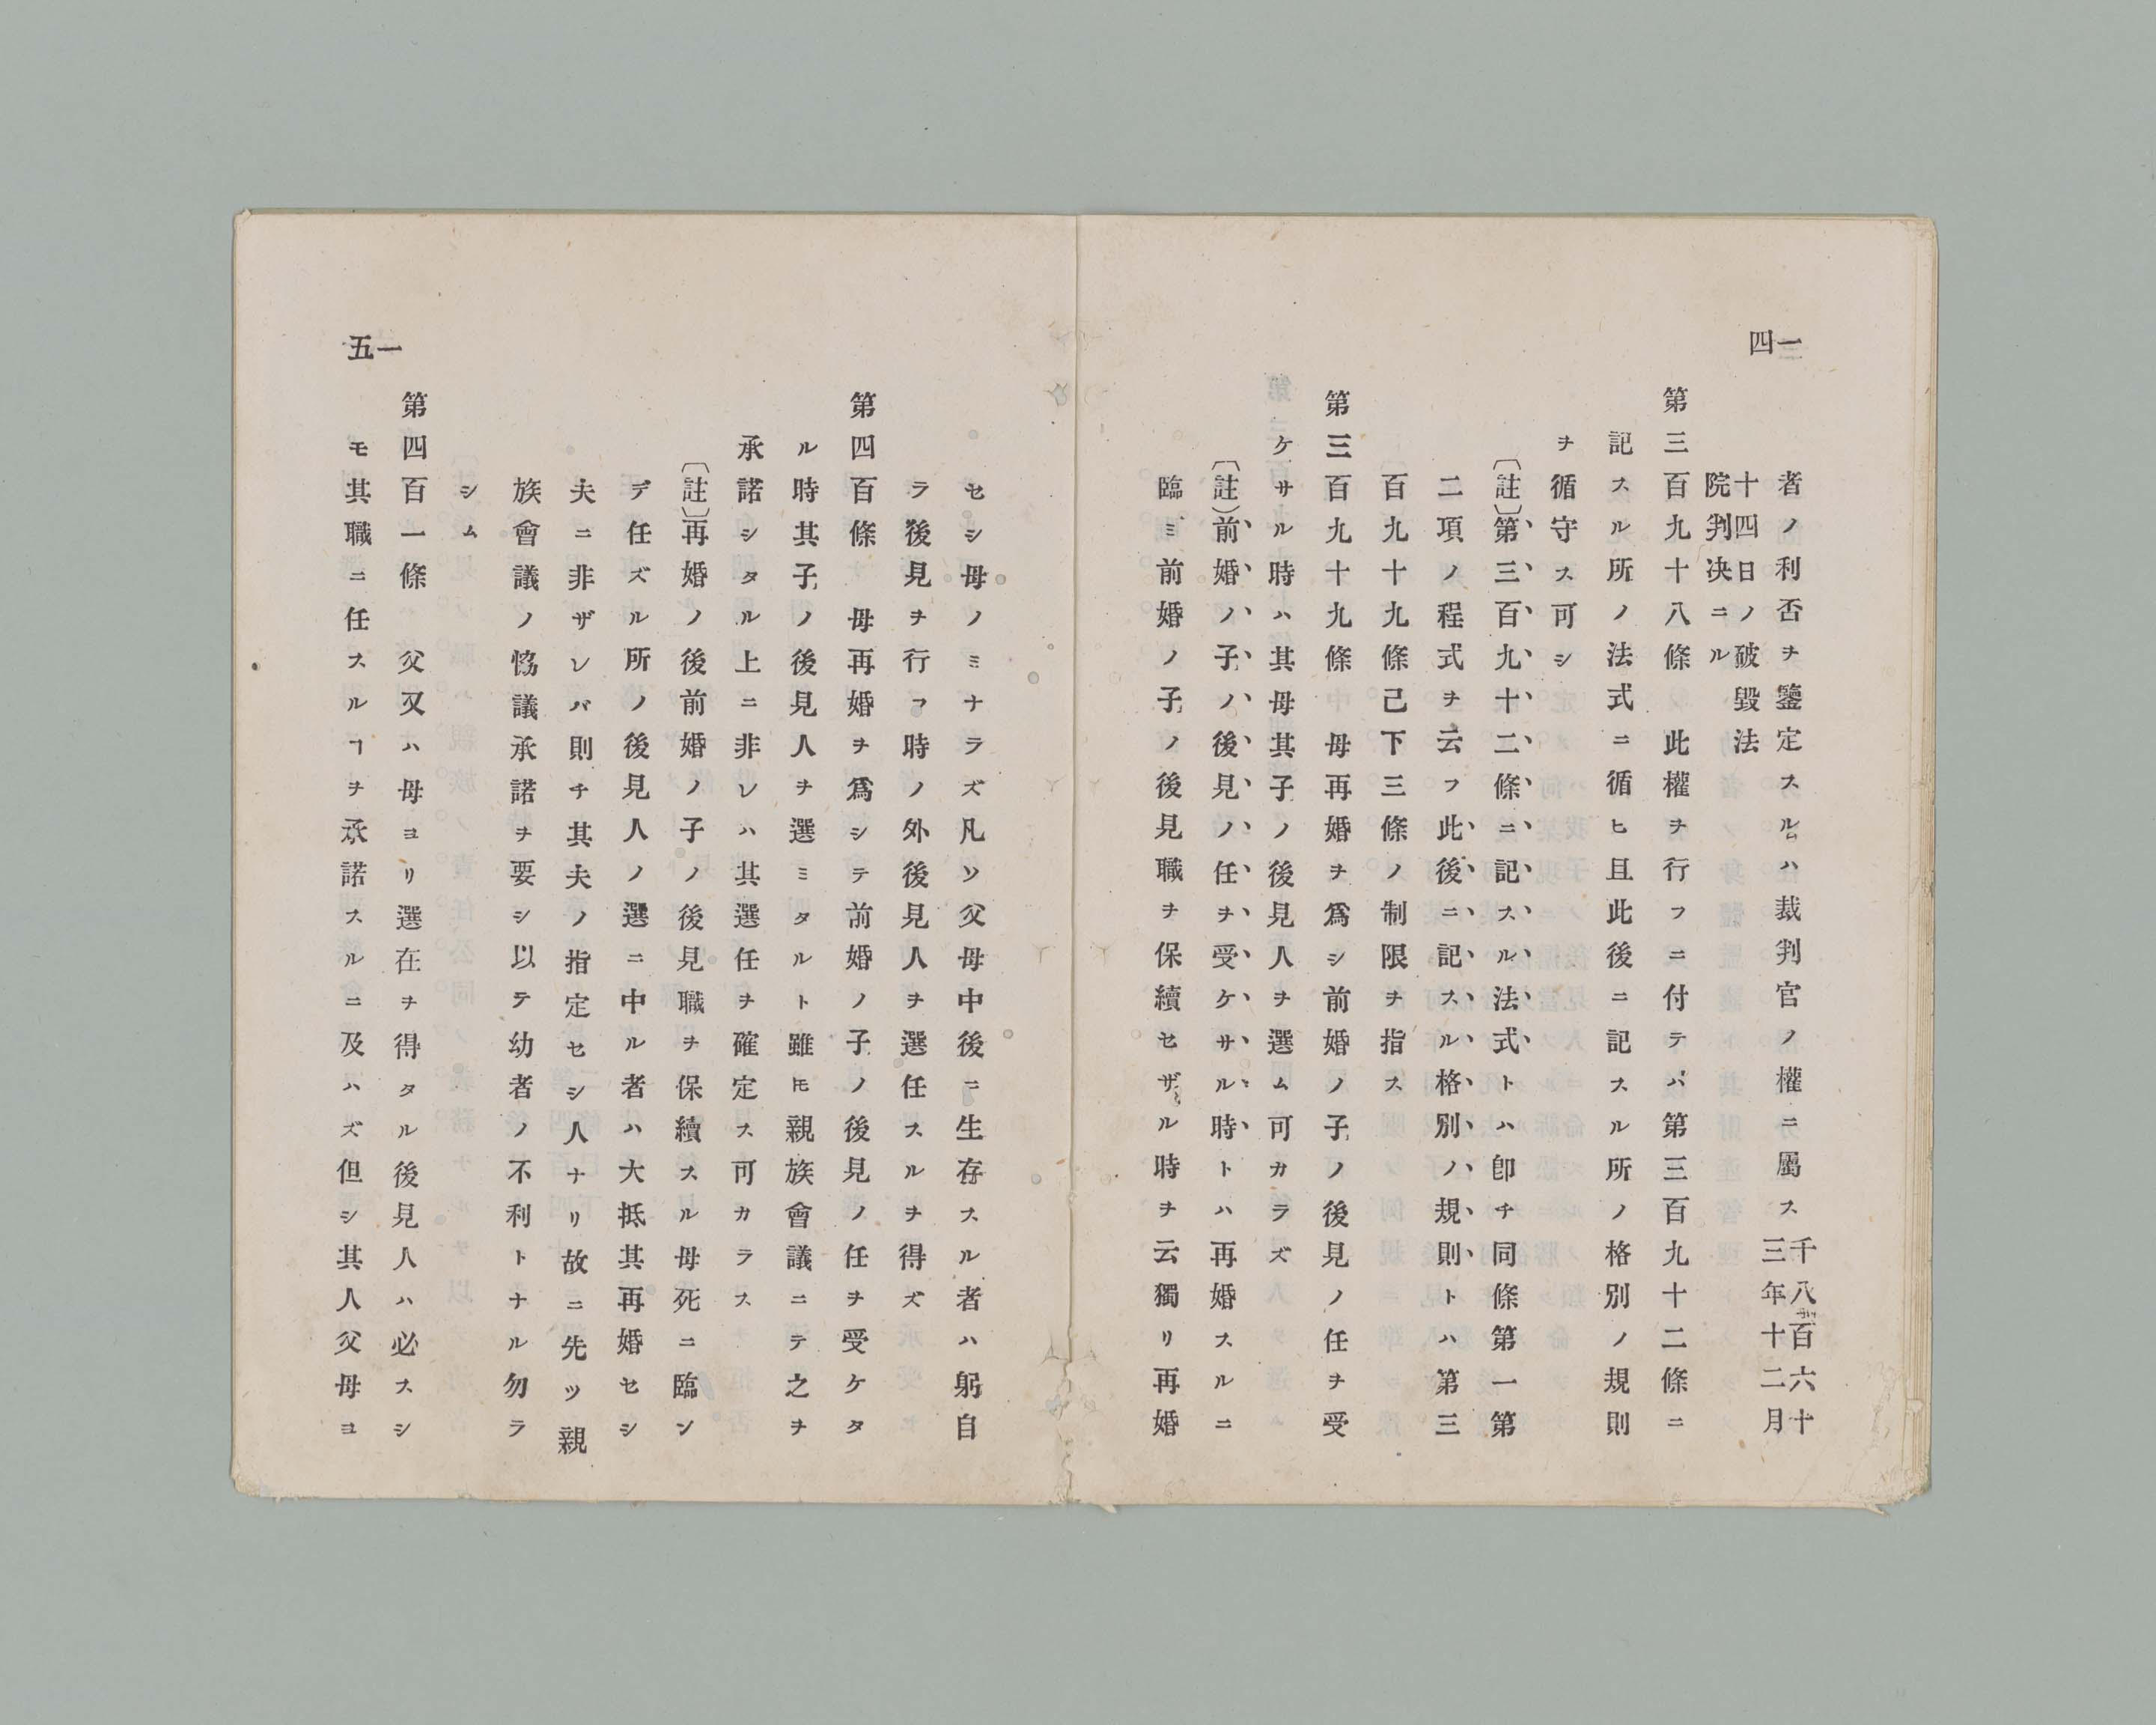 一四
者ノ利否ヲ鑒定スルハ裁判官ノ權ニ屬ス千八百六十三年十二月
十四日ノ破毀法院判决ニル
第三百九十八條　此權ヲ行フニ付テハ第三百九十二條ニ
記スル所ノ法式ニ循ヒ且此後ニ記スル所ノ格別ノ規則
ヲ循守ス可シ
〔註〕第三百九十二條ニ記スル法式トハ卽チ同條第一第
二項ノ程式ヲ云フ此後ニ記スル格別ノ規則トハ第三
百九十九條己下三條ノ制限ヲ指ス
第三百九十九條　母再婚ヲ爲シ前婚ノ子ノ後見ノ任ヲ受
ケサル時ハ其母其子ノ後見人ヲ選ム可カラズ
〔註〕前婚ノ子ノ後見ノ任ヲ受ケサル時トハ再婚スルニ
臨ミ前婚ノ子ノ後見職ヲ保續セザル時ヲ云獨リ再婚
一五
セシ母ノミナラズ凡ソ父母中後ニ生存スル者ハ躬自
ラ後見ヲ行フ時ノ外後見人ヲ選任スルヲ得ズ
第四百條　母再婚ヲ爲シテ前婚ノ子ノ後見ノ任ヲ受ケタ
ル時其子ノ後見人ヲ選ミタルト雖モ親族會議ニテ之ヲ
承諾シタル上ニ非レハ其選任ヲ確定ス可カラス
〔註〕再婚ノ後前婚ノ子ノ後見職ヲ保續スル母死ニ臨ン
デ任ズル所ノ後見人ノ選ニ中ル者ハ大抵其再婚セシ
夫ニ非ザレバ則チ其夫ノ指定セシ人ナリ故ニ先ツ親
族會議ノ恊議承諾ヲ要シ以テ幼者ノ不利トナル勿ラ
シム
第四百一條　父又ハ母ヨリ選在ヲ得タル後見人ハ必スシ
モ其職ニ任スルヿヲ承諾スルニ及ハズ但シ其人父母ヨ